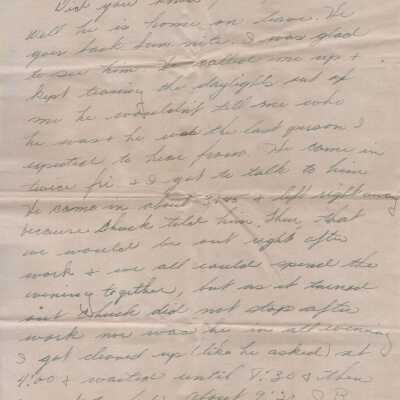 Did you know
Well he is home on leave. He
goes back Sun nite. I was glad
to see him. He called me up +
kept teasing the daylights out of
me he wouldn't tell me who
he was + he was the last person I
expected to hear from. He came in
twice fri + I got to talk to him
He came in about 3:45 + left right away
because Chuck told him, then, that
we would be out right after
work + we all could spend the
evening together, but as it turned
out Chuck did not stop after
work nor was he in all evening
I got cleaned up (like he asked) at
4:00 + waited until 8:30 + then
about 9:30